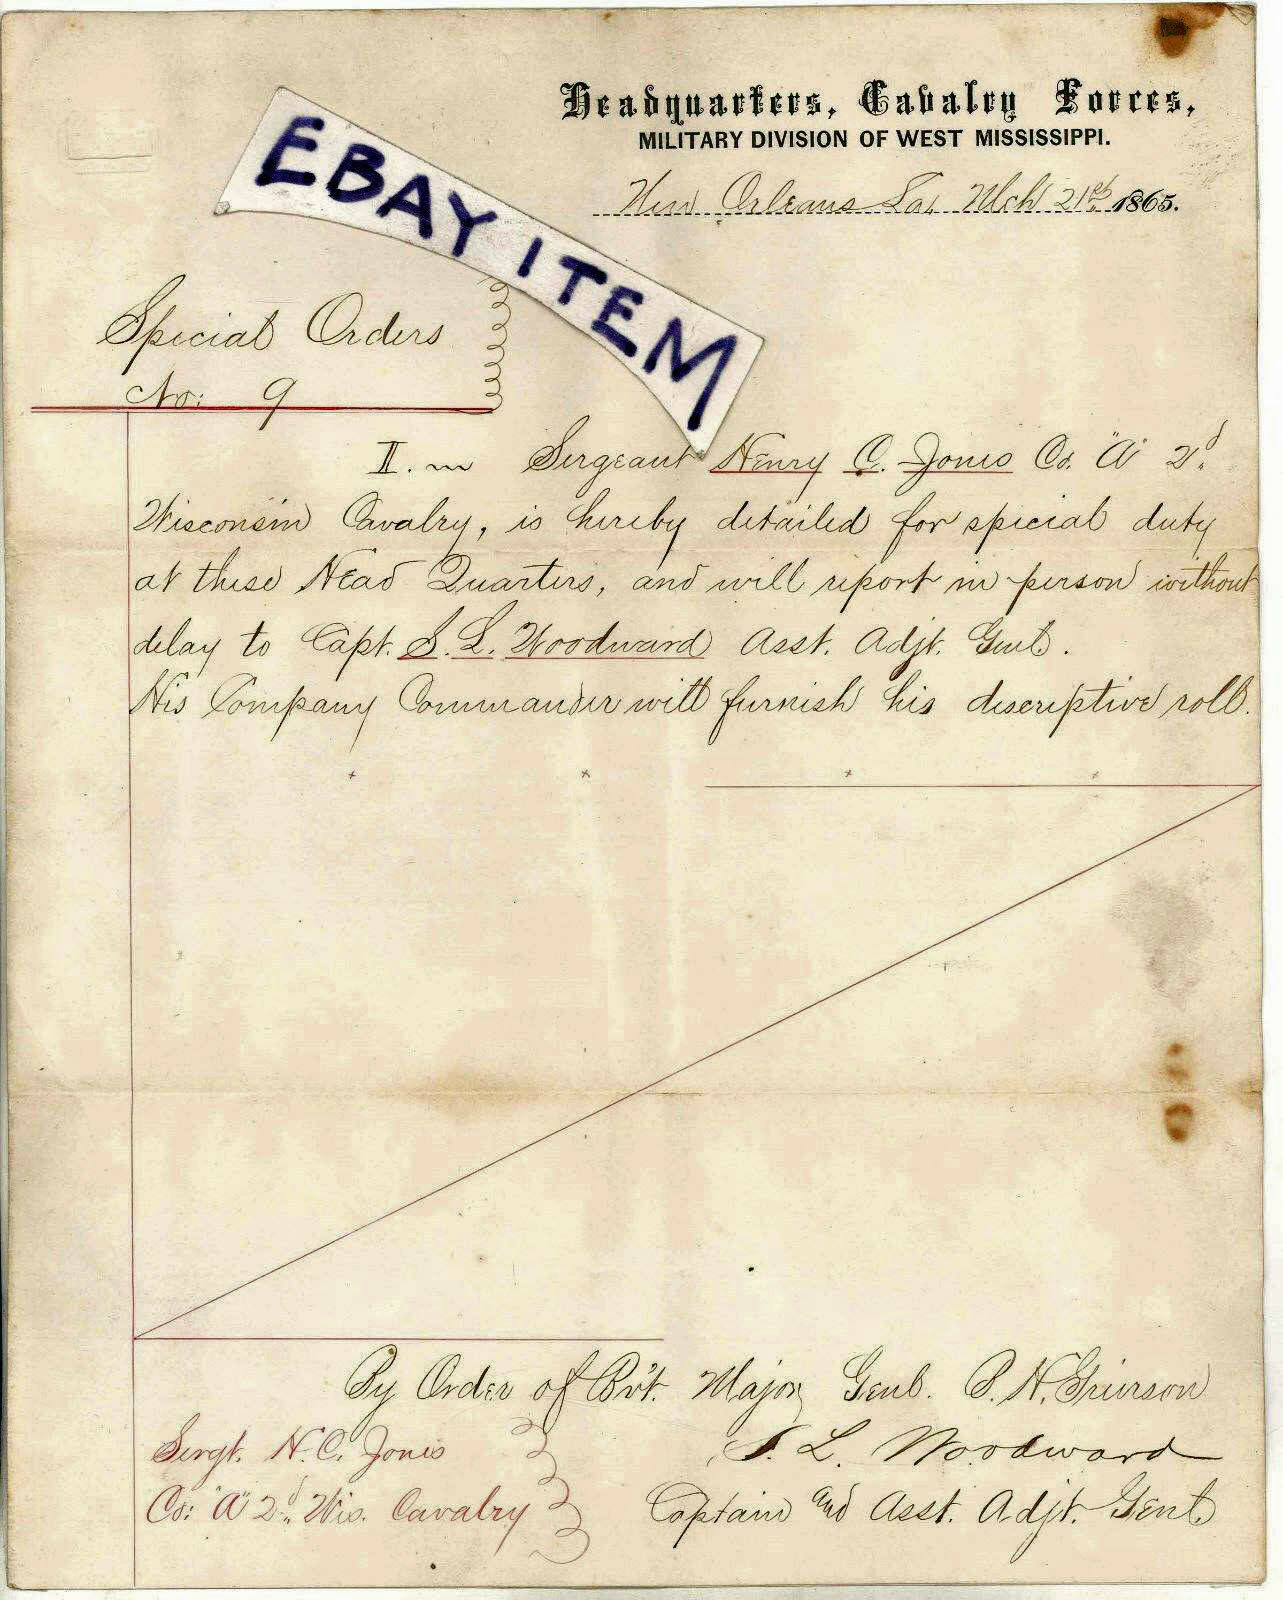 Headquarters, Cavalry Forces,
MILITARY DIVISION OF WEST MISSISSIPPI.
New Orleans La, Mch 21st 1865.
EBAY ITEM
Special Orders
No: 9
II. Sergeant Henry C. Jones Co. "A" 2d
Wisconsin Cavalry, is hereby detailed for special duty
at these Head Quarters, and will report in person without
delay to Capt. S. L. Woodward Asst. Adjt. Genl.
His Company Commander will furnish his descriptive roll.
x x x x
By Order of Bv't. Major Genl. B. H. Grierson
S. L. Woodward
Captain and Asst. Adjt. Genl.
Sergt. H. C. Jones
Co: "A" 2d Wis. Cavalry